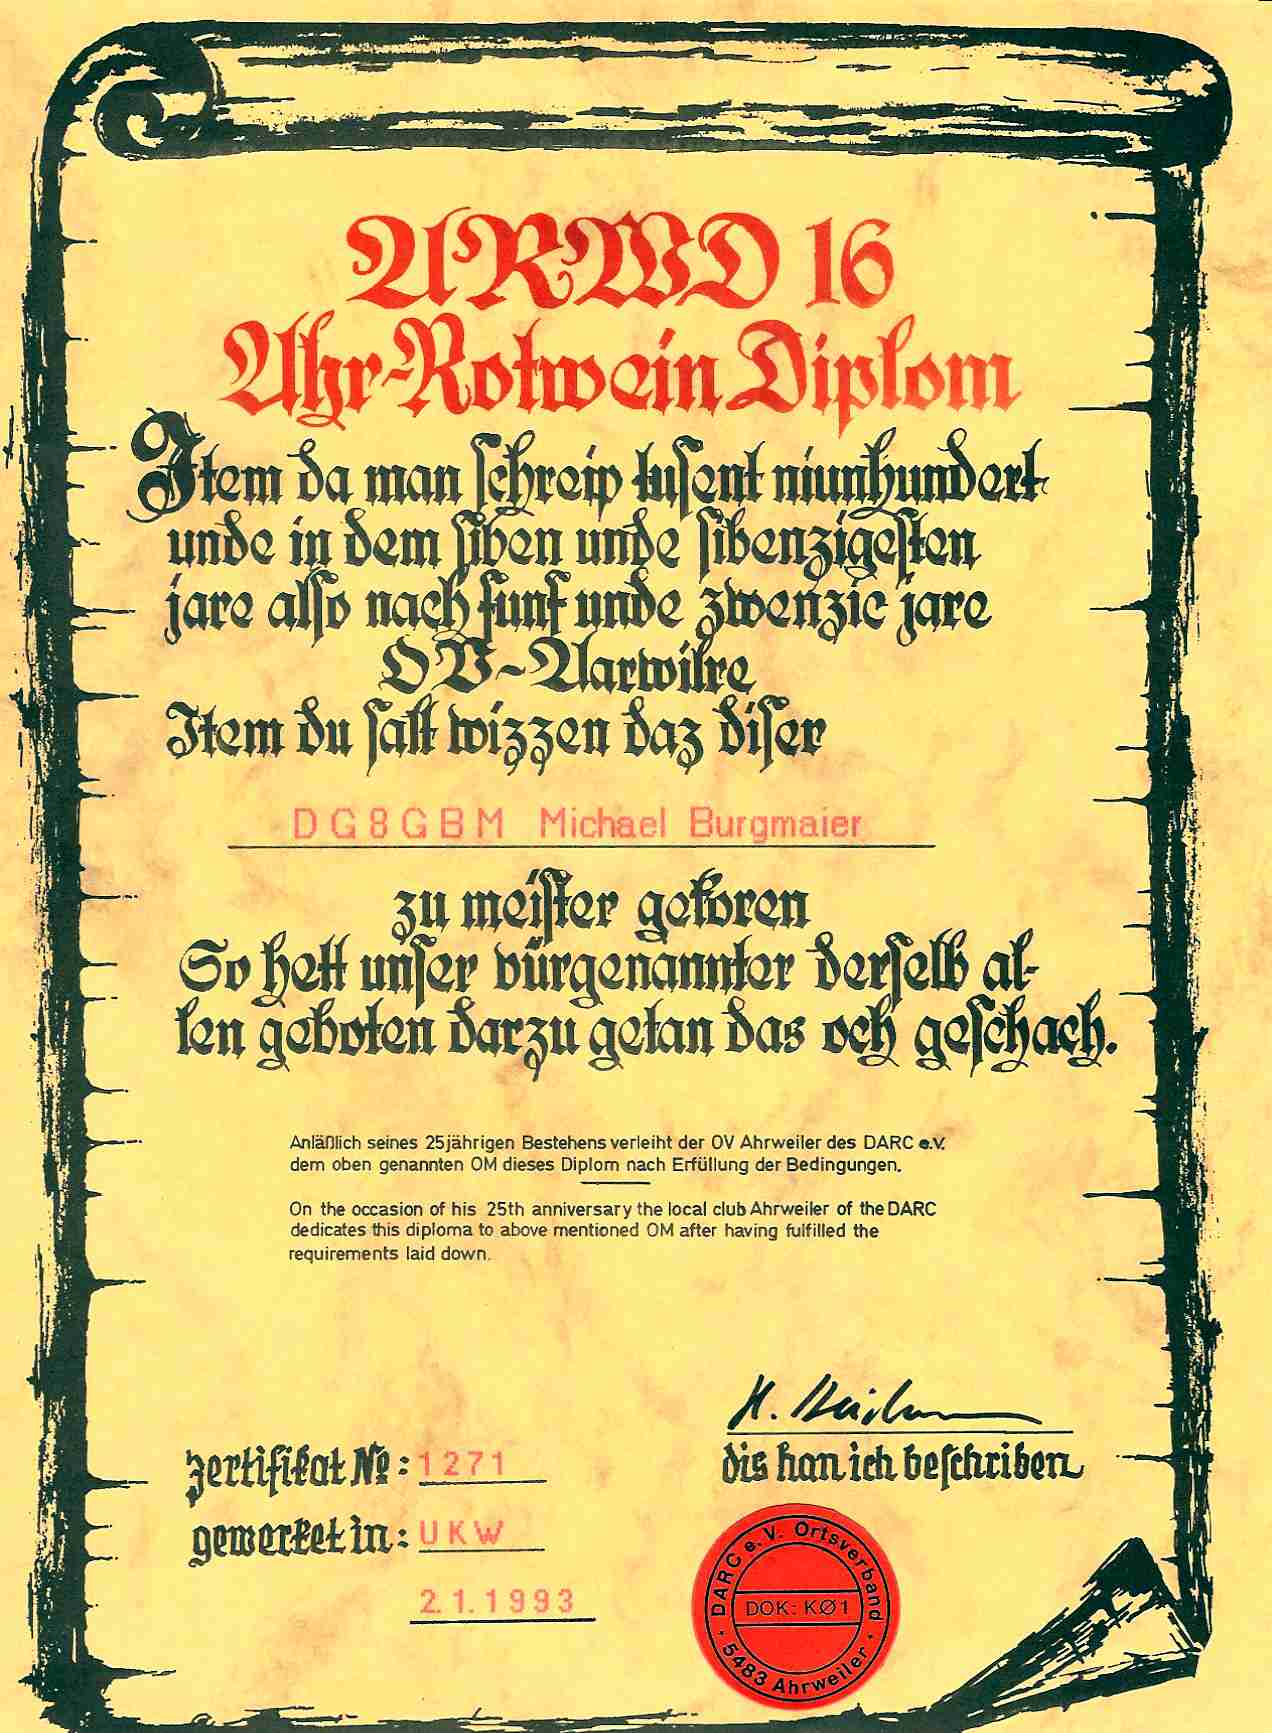 ARWD 16
Ahr-Rotwein Diplom
Item da man schreip tusent niunhundert
unde in dem siben unde sibenzigesten
jare also nach funf unde zwenzic jare
OV-Aarwilre
Item du salt wizzen daz diser
DG8GBM Michael Burgmaier
zu meister gekoren
So hett unser vürgenannter derselb al-
len geboten darzu getan das och geschach.
Anläßlich seines 25jährigen Bestehens verleiht der OV Ahrweiler des DARC e.V.
dem oben genannten OM dieses Diplom nach Erfüllung der Bedingungen.
On the occasion of his 25th anniversary the local club Ahrweiler of the DARC
dedicates this diploma to above mentioned OM after having fulfilled the
requirements laid down.
H.
dis han ich beschriben
zertifikat No: 1271
gewerket in: UKW
2.1.1993
DARC e.V. Ortsverband
DOK: KØ1
5483 Ahrweiler